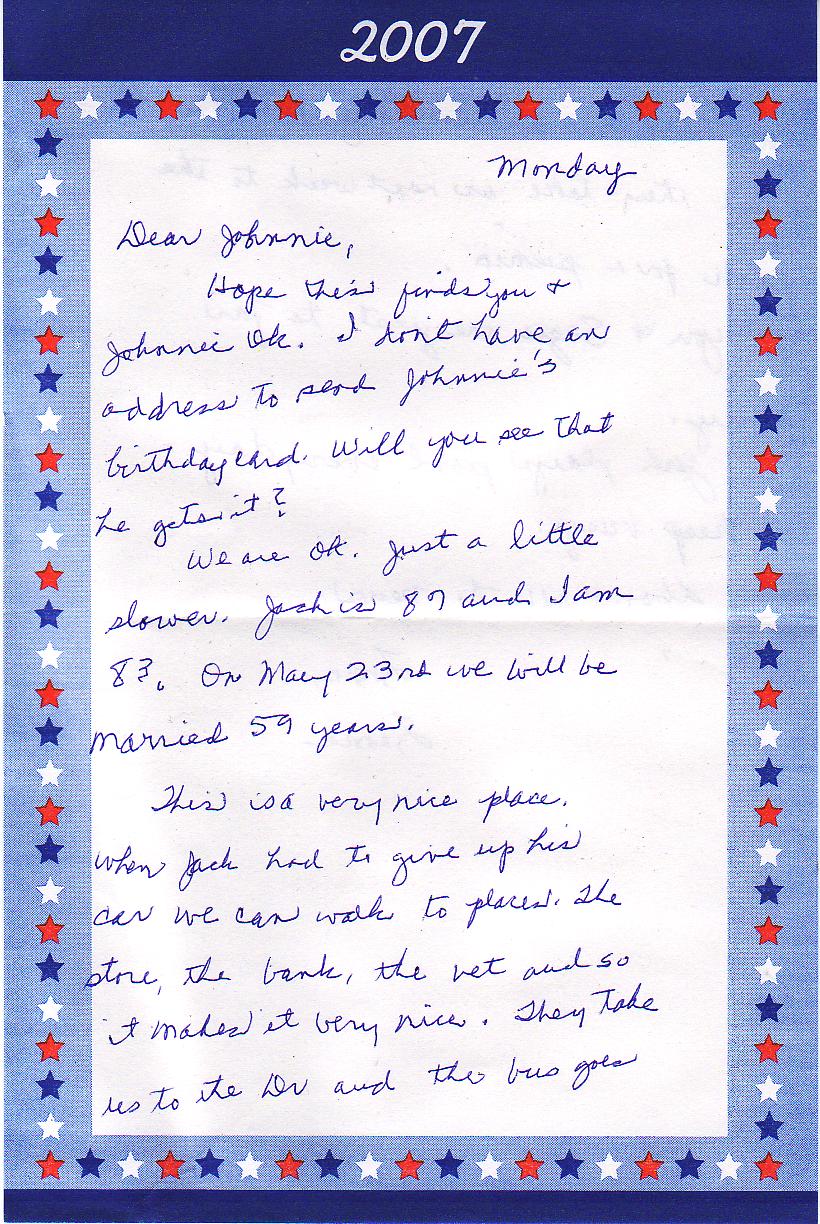 2007
Monday
Dear Johnnie,
Hope this finds you +
Johnnie Ok. I don't have an
address to send Johnnie's
birthday card. Will you see that
he gets it?
We are OK. Just a little
slower. Jack is 87 and I am
83. On May 23rd we will be
married 59 years.
This is a very nice place.
When Jack had to give up his
car we can walk to places. The
store, the bank, the vet and so
it makes it very nice. They take
us to the Dr and the bus goes